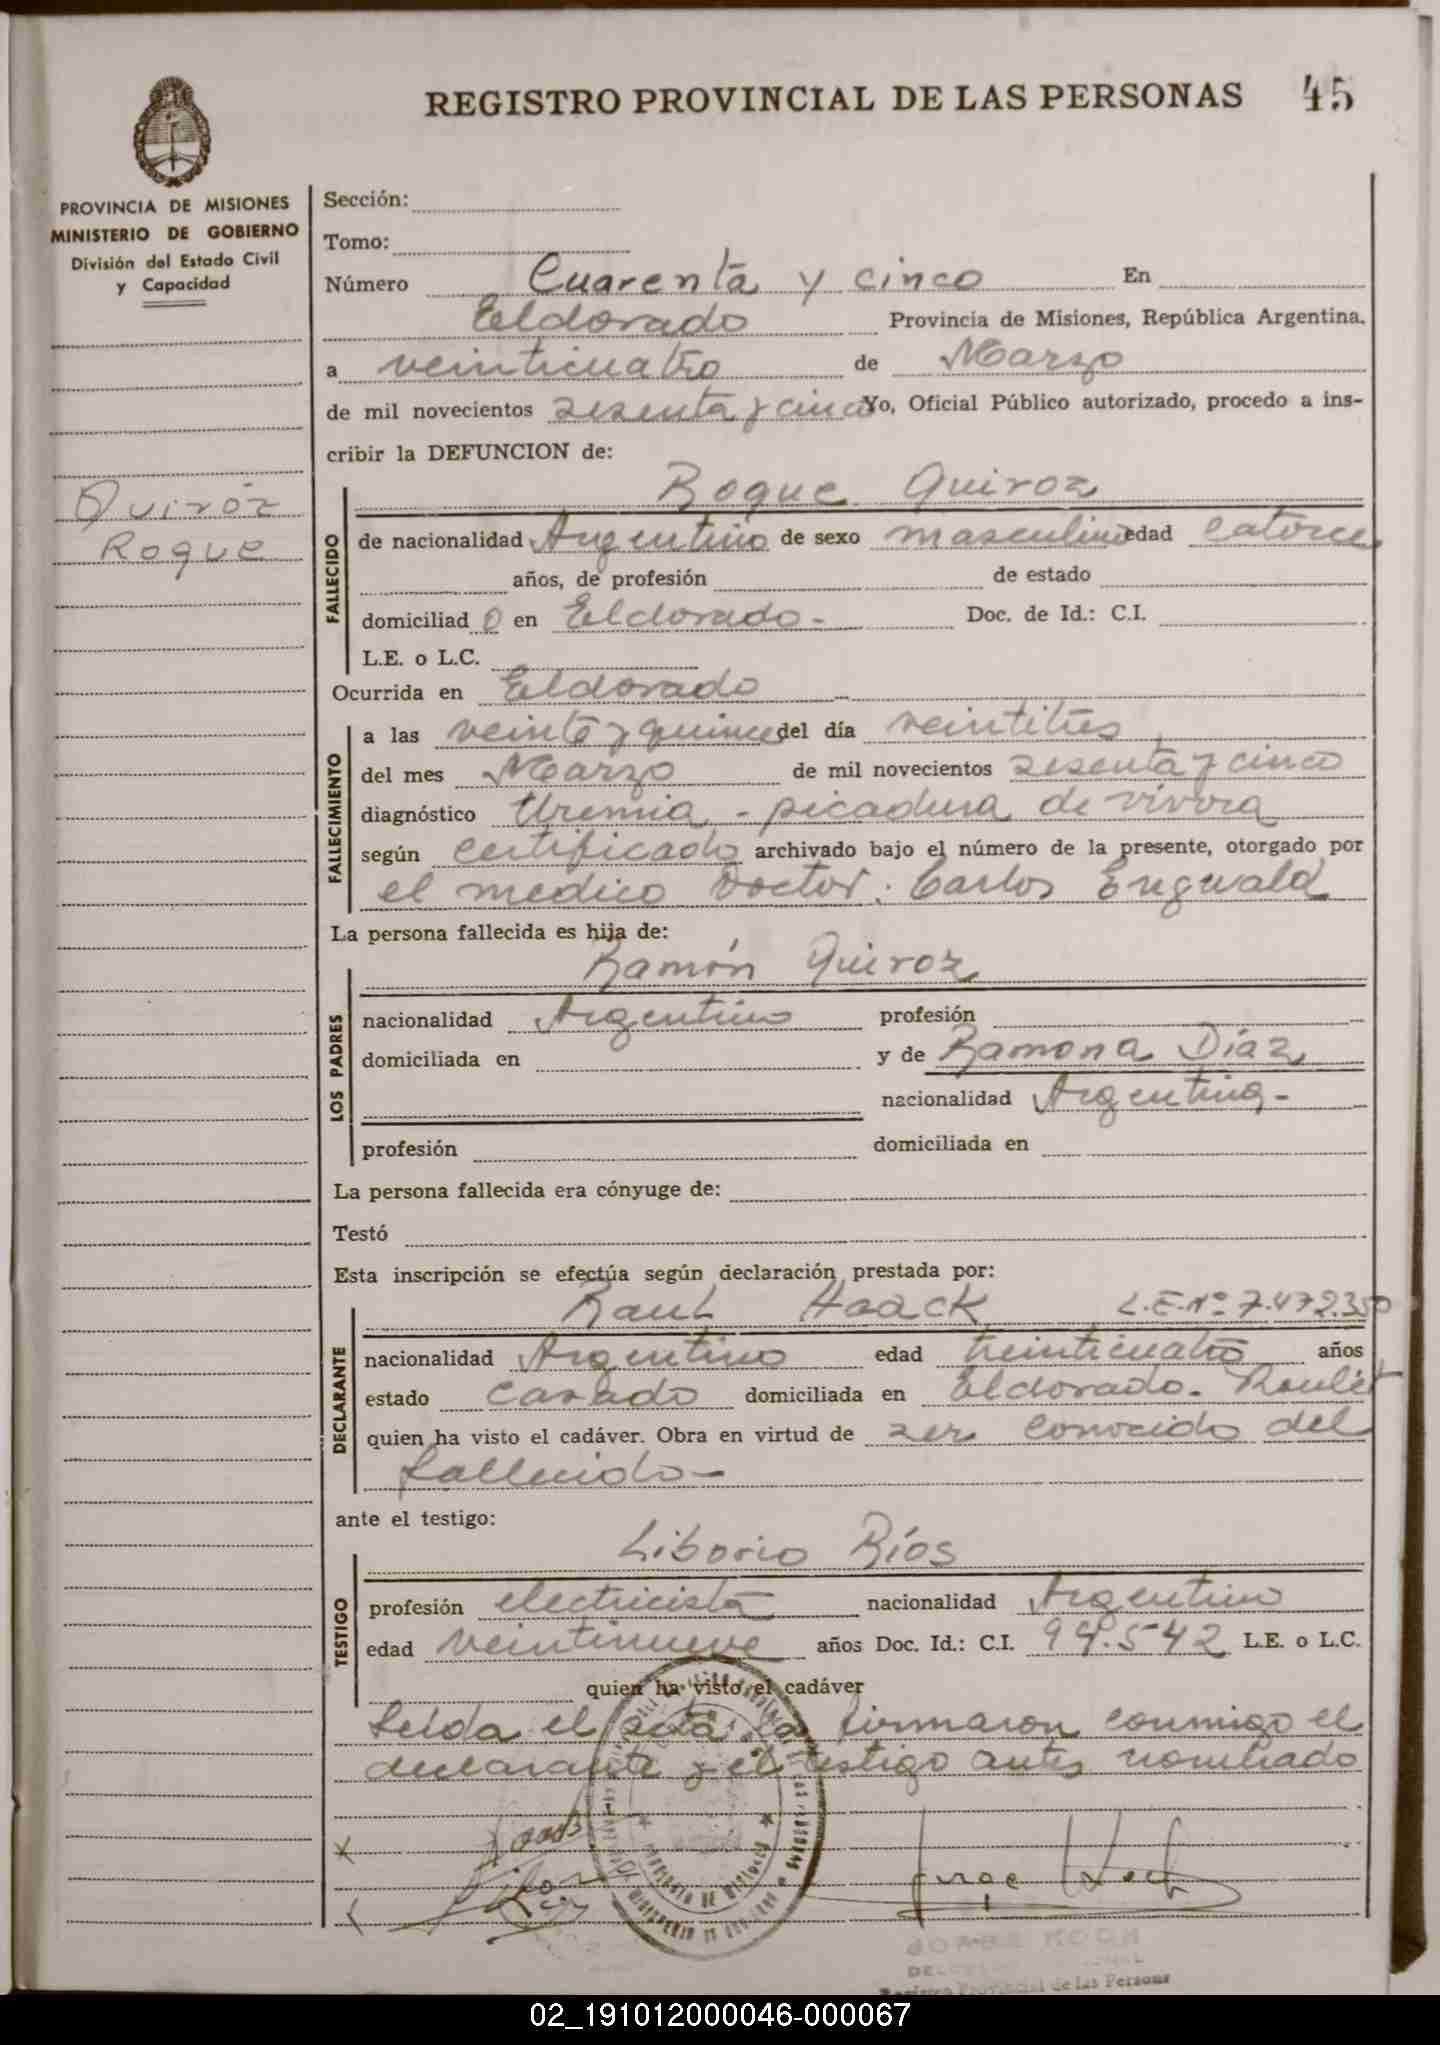 REGISTRO PROVINCIAL DE LAS PERSONAS 45
PROVINCIA DE MISIONES
MINISTERIO DE GOBIERNO
División del Estado Civil
y Capacidad
Quiróz
Roque
Sección:
Tomo:
Número Cuarenta y cinco En
Eldorado Provincia de Misiones, República Argentina.
a veinticuatro de Marzo
de mil novecientos sesenta y cinco Yo, Oficial Público autorizado, procedo a ins-
cribir la DEFUNCION de:
Roque Quiroz
FALLECIDO
de nacionalidad Argentino de sexo masculino edad catorce
años, de profesión de estado
domiciliad o en Eldorado - Doc. de Id.: C.I.
L.E. o L.C.
Ocurrida en Eldorado
FALLECIMIENTO
a las veinte y quince del día veintitres
del mes Marzo de mil novecientos sesenta y cinco
diagnóstico Uremia - picadura de vívora
según certificado archivado bajo el número de la presente, otorgado por
el medico Doctor: Carlos Engwald
La persona fallecida es hija de:
Ramón Quiroz
LOS PADRES
nacionalidad Argentino profesión
domiciliada en y de Ramona Díaz
nacionalidad Argentina -
profesión domiciliada en
La persona fallecida era cónyuge de:
Testó
Esta inscripción se efectúa según declaración prestada por:
Raul Haack L.E. Nº 7.472.350
DECLARANTE
nacionalidad Argentino edad treinticuatro años
estado casado domiciliada en Eldorado -
quien ha visto el cadáver. Obra en virtud de ser conocido del
fallecido -
ante el testigo:
Liborio Ríos
TESTIGO
profesión electricista nacionalidad Argentino
edad veintinueve años Doc. Id.: C.I. 99.542 L.E. o L.C.
quien ha visto el cadáver
Leída el acta la firmaron conmigo el
declarante y el testigo antes nombrado
PROVINCIA DE MISIONES
JORGE KOCH
Registro Provincial de las Personas
02_191012000046-000067